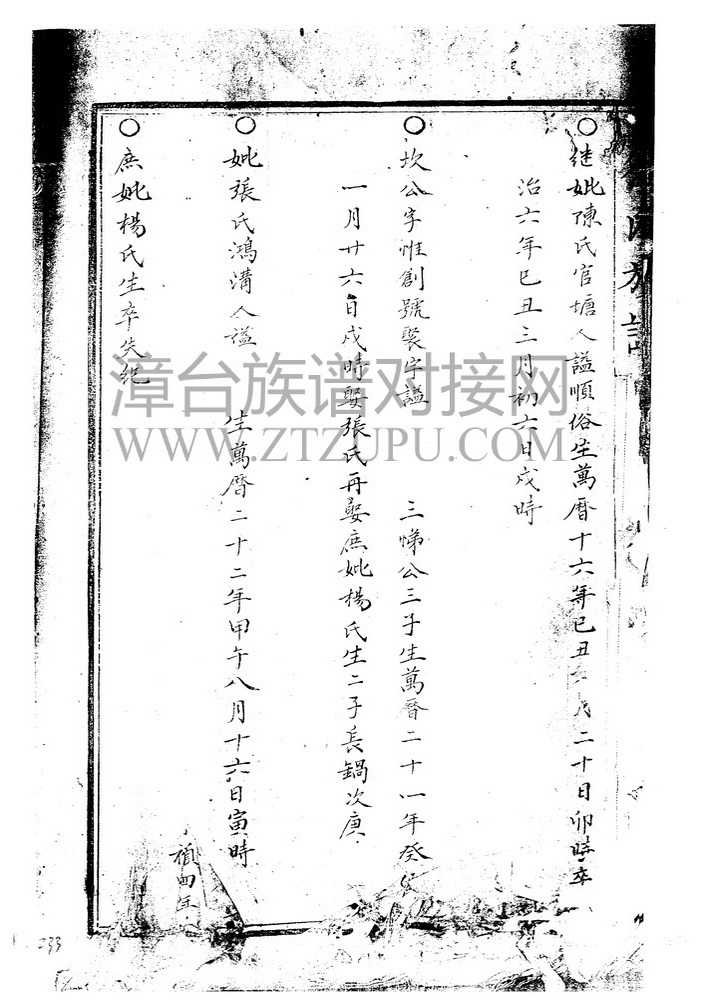 族譜
○繼妣陳氏官塘人謚順俗生萬曆十六年己丑月二十日卯時卒
治六年己丑三月初六日戌時
○坎公字惟創號聚宇謚 三悌公三子生萬曆二十一年癸
一月廿六日戌時娶張氏再娶庶妣楊氏生二子長鍋次庚
○妣張氏鴻溝人謚 生萬曆二十二年甲午八月十六日寅時
○庶妣楊氏生卒失紀
漳台族谱对接网
WWW.ZTZUPU.COM
233